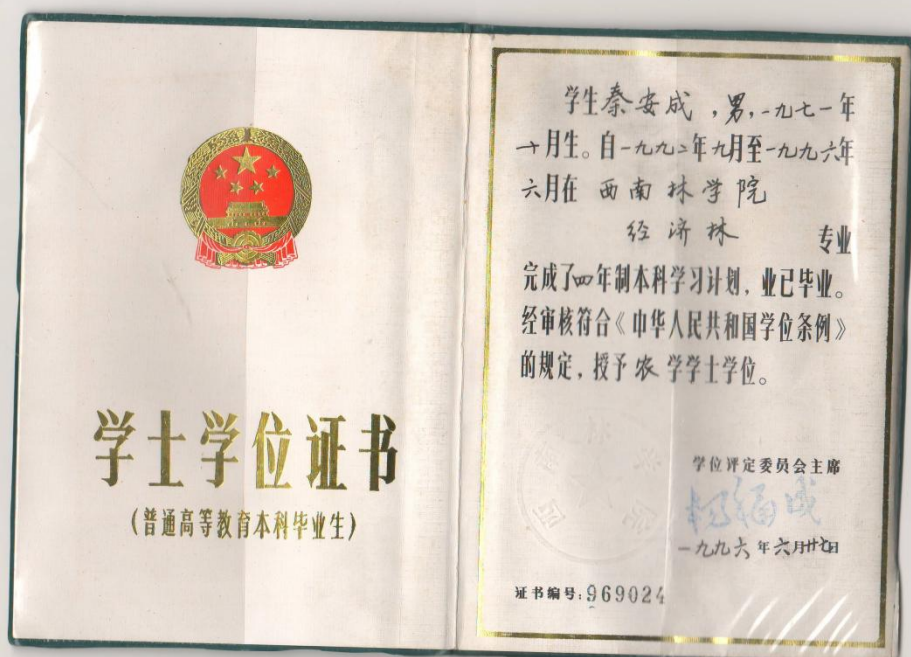 学士学位证书
(普通高等教育本科毕业生)
学生秦安成,男,一九七一年
十月生。自一九九二年九月至一九九六年
六月在 西南林学院
经济林 专业
完成了四年制本科学习计划,业已毕业。
经审核符合《中华人民共和国学位条例》
的规定,授予农学学士学位。
学位评定委员会主席
一九九六年六月廿七日
证书编号:969024